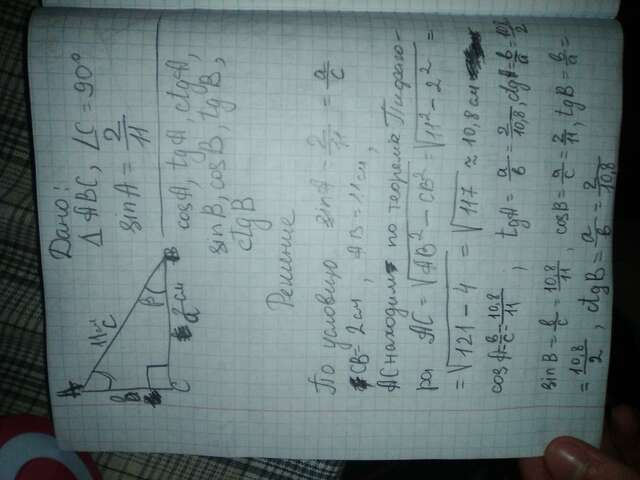 Дано:
△ ABC, ∠C = 90°
sin A = 2/11
cos A, tg A, ctg A,
sin B, cos B, tg B,
ctg B
A
11 см
c
B
β
2 см
C
Решение
По условию sin A = 2/11 = a/c
CB = 2 см, AB = 11 см,
AC находим по теореме Пифаго-
ра AC = √AB² - CB² = √11² - 2² =
= √121 - 4 = √117 ≈ 10,8 см
cos A = b/c = 10,8/11, tg A = a/b = 2/10,8, ctg A = b/a = 10,8/2
sin B = b/c = 10,8/11, cos B = a/c = 2/11, tg B = b/a =
= 10,8/2, ctg B = a/b = 2/10,8